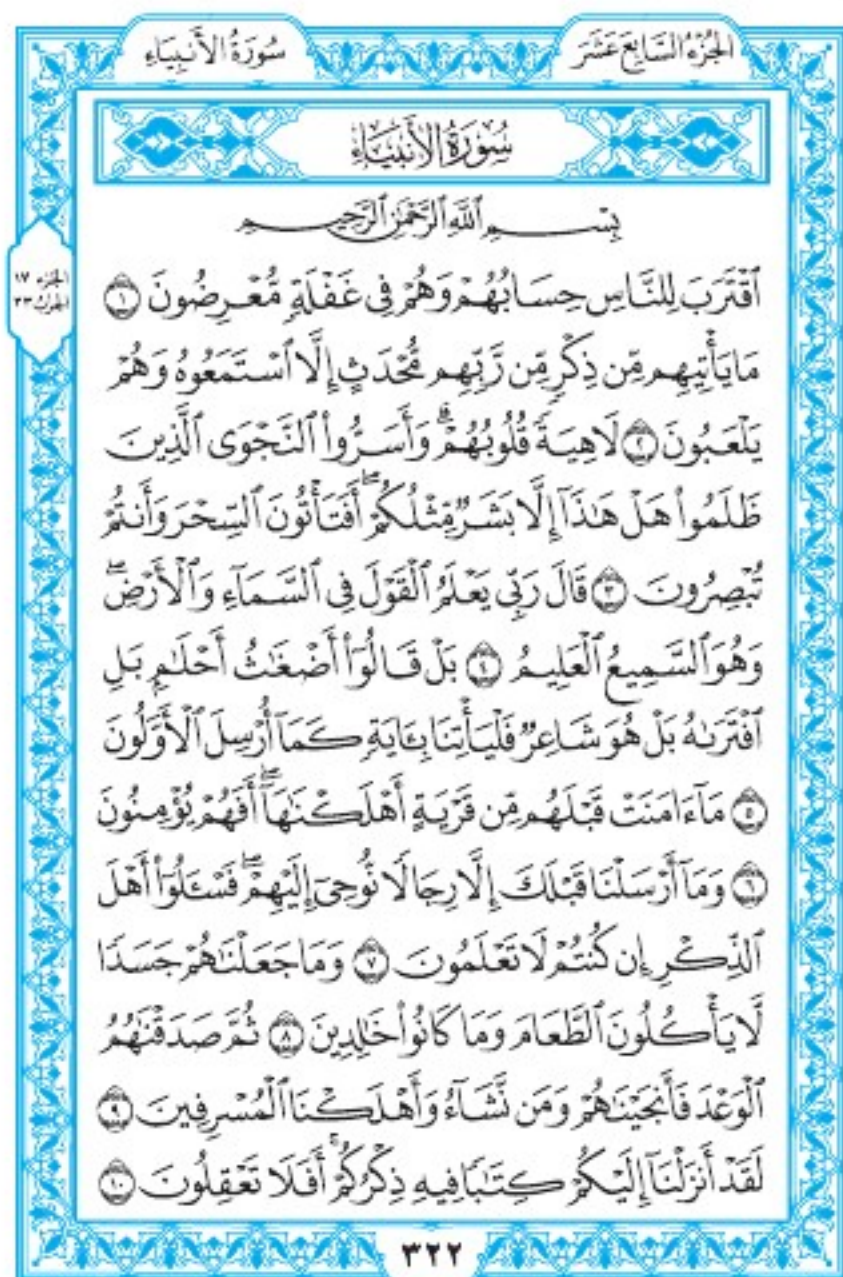 سُورَةُ الأَنبِيَاءِ
الجُزْءُ السَّابِعَ عَشَرَ
سُورَةُ الأَنبِيَاءِ
بِسۡمِ ٱللَّهِ ٱلرَّحۡمَٰنِ ٱلرَّحِيمِ
الجزء ١٧
الحزب ٣٣
ٱقۡتَرَبَ لِلنَّاسِ حِسَابُهُمۡ وَهُمۡ فِي غَفۡلَةٖ مُّعۡرِضُونَ ١
مَا يَأۡتِيهِم مِّن ذِكۡرٖ مِّن رَّبِّهِم مُّحۡدَثٍ إِلَّا ٱسۡتَمَعُوهُ وَهُمۡ
يَلۡعَبُونَ ٢ لَاهِيَةٗ قُلُوبُهُمۡۗ وَأَسَرُّواْ ٱلنَّجۡوَى ٱلَّذِينَ
ظَلَمُواْ هَلۡ هَٰذَآ إِلَّا بَشَرٞ مِّثۡلُكُمۡۖ أَفَتَأۡتُونَ ٱلسِّحۡرَ وَأَنتُمۡ
تُبۡصِرُونَ ٣ قَالَ رَبِّي يَعۡلَمُ ٱلۡقَوۡلَ فِي ٱلسَّمَآءِ وَٱلۡأَرۡضِۖ
وَهُوَ ٱلسَّمِيعُ ٱلۡعَلِيمُ ٤ بَلۡ قَالُوٓاْ أَضۡغَٰثُ أَحۡلَٰمِۭ بَلِ
ٱفۡتَرَىٰهُ بَلۡ هُوَ شَاعِرٞ فَلۡيَأۡتِنَا بِـَٔايَةٖ كَمَآ أُرۡسِلَ ٱلۡأَوَّلُونَ
٥ مَآ ءَامَنَتۡ قَبۡلَهُم مِّن قَرۡيَةٍ أَهۡلَكۡنَٰهَآۖ أَفَهُمۡ يُؤۡمِنُونَ
٦ وَمَآ أَرۡسَلۡنَا قَبۡلَكَ إِلَّا رِجَالٗا نُّوحِيٓ إِلَيۡهِمۡۖ فَسۡـَٔلُوٓاْ أَهۡلَ
ٱلذِّكۡرِ إِن كُنتُمۡ لَا تَعۡلَمُونَ ٧ وَمَا جَعَلۡنَٰهُمۡ جَسَدٗا
لَّا يَأۡكُلُونَ ٱلطَّعَامَ وَمَا كَانُواْ خَٰلِدِينَ ٨ ثُمَّ صَدَقۡنَٰهُمُ
ٱلۡوَعۡدَ فَأَنجَيۡنَٰهُمۡ وَمَن نَّشَآءُ وَأَهۡلَكۡنَا ٱلۡمُسۡرِفِينَ ٩
لَقَدۡ أَنزَلۡنَآ إِلَيۡكُمۡ كِتَٰبٗا فِيهِ ذِكۡرُكُمۡۚ أَفَلَا تَعۡقِلُونَ ١٠
٣٢٢